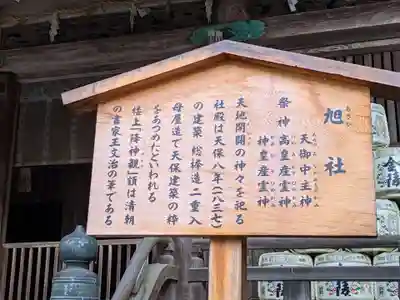 旭社
あさひ
天御中主神
祭神 高皇産霊神
神皇産霊神
天地開闢の神々を祀る
社殿は天保八年(一八三七)
の建築 総欅造 二重入
母屋造で天保建築の粋
をあつめたといわれる
楼上「降神観」額は清朝
の書家王文治の筆である
金陵
金陵
金陵